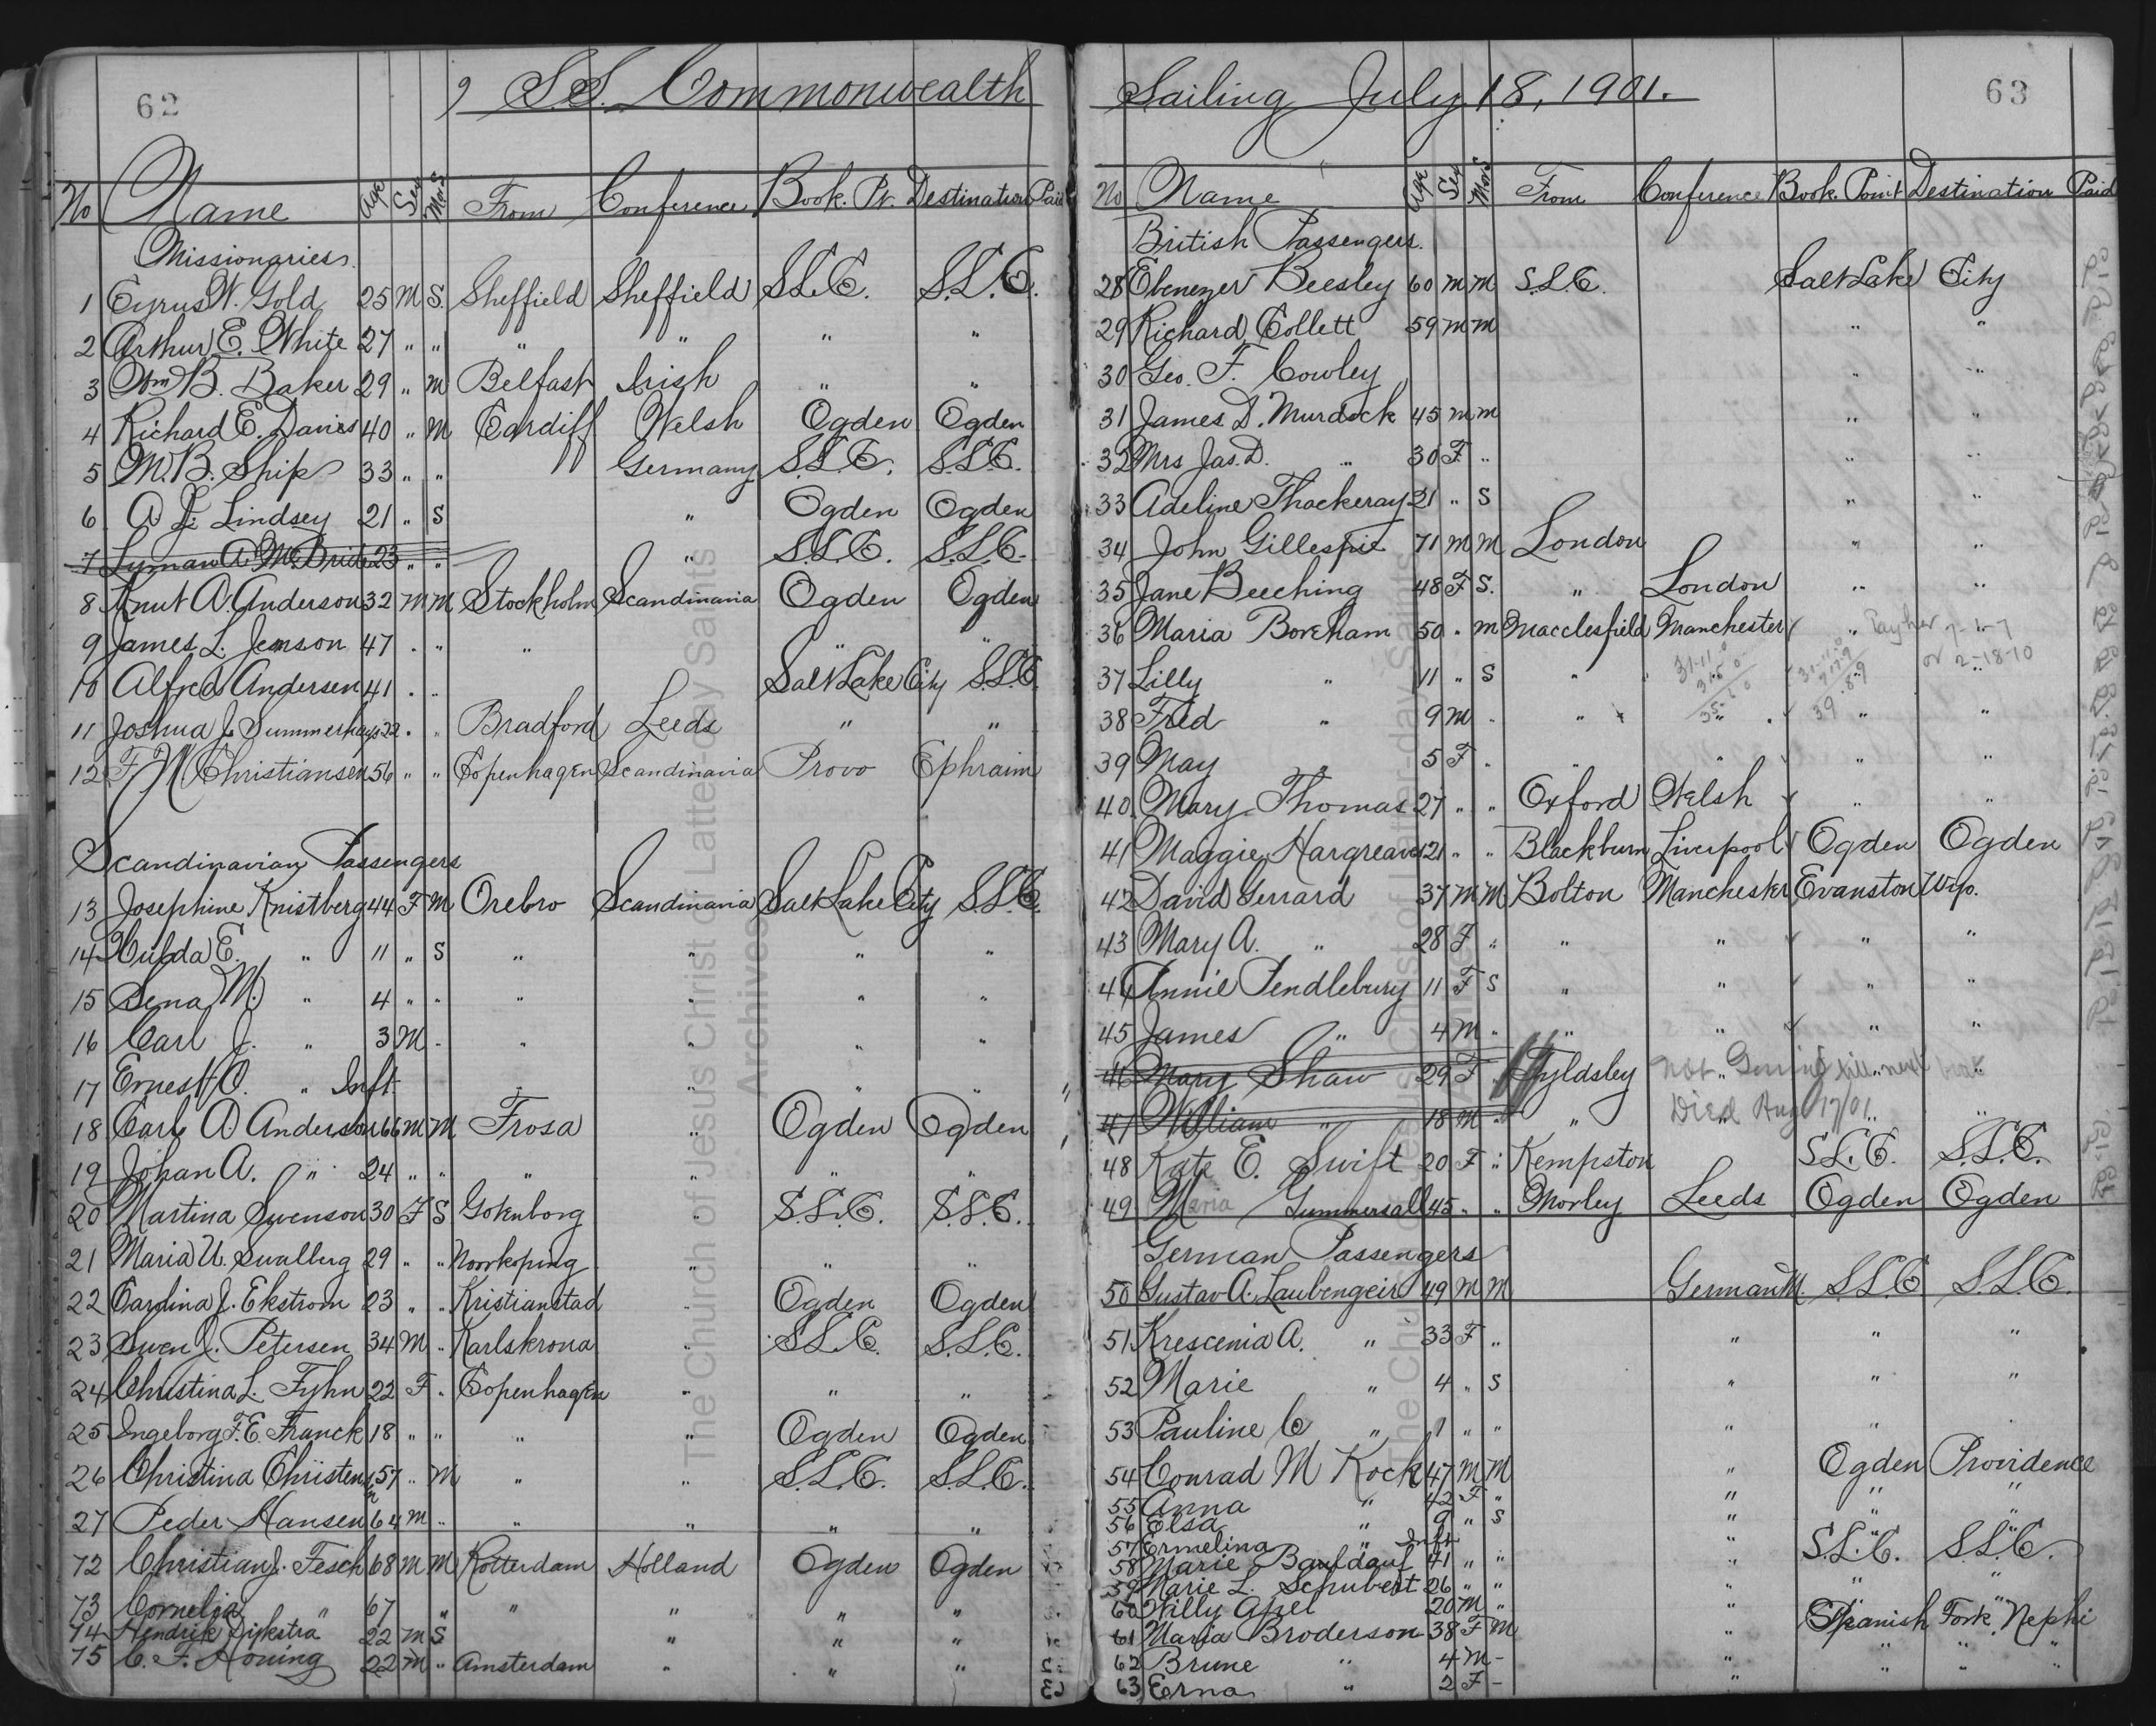 62
9 S.S. Commonwealth
No Name Age Sex MorS From Conference Book. Pt. Destination Paid
Missionaries
1 Cyrus W. Gold 25 M S. Sheffield Sheffield S.L.C. S.L.C.
2 Arthur E. White 27 " " " " " "
3 Wm B. Baker 29 " M Belfast Irish " "
4 Richard E. Davis 40 " M Cardiff Welsh Ogden Ogden
5 M. B. Ship 33 " " Germany S.L.C. S.L.C.
6 A J. Lindsey 21 " S " Ogden Ogden
7 Lyman A McBride 23 " " " S.L.C. S.L.C.
8 Knut A. Anderson 32 M M Stockholm Scandinavia Ogden Ogden
9 James L. Jenson 47 " " " " "
10 Alfred Andersen 41 " " Salt Lake City S.L.C.
11 Joshua J. Summerhays 22 " " Bradford Leeds " "
12 F M Christiansen 56 " " Copenhagen Scandinavia Provo Ephraim
Scandinavian Passengers
13 Josephine Knistberg 44 F M Orebro Scandinavia Salt Lake City S.L.C.
14 Hulda E. " 11 " S " " " "
15 Sena M. " 4 " " " " " "
16 Carl J. " 3 M " " " " "
17 Ernest O. " Inft. " " " "
18 Carl A Anderson 66 M M Trosa " Ogden Ogden
19 Johan A. " 24 " " " " " "
20 Martina Swenson 30 F S Gotenborg " S.L.C. S.L.C.
21 Maria U. Swalberg 29 " " Noorkoping " " "
22 Carolina J. Ekstrom 23 " " Kristianstad " Ogden Ogden
23 Swen J. Petersen 34 M " Karlskrona " S.L.C. S.L.C.
24 Christina L. Fyhn 22 F " Copenhagen " " "
25 Ingeborg F. E. Franck 18 " " " " Ogden Ogden
26 Christina Christensen 57 " M " " S.L.C. S.L.C.
27 Peder Hansen 64 M " " " " "
72 Christian J. Fesch 68 M M Rotterdam Holland Ogden Ogden
73 Cornelia " 67 " " " " "
74 Hendrik Dijkstra 22 M S " " "
75 C. F. Honing 22 M " Amsterdam " " "
Sailing July 18, 1901.
63
No Name Age Sex MorS From Conference Book. Point Destination Paid
British Passengers.
28 Ebenezer Beesley 60 M M S.L.C. Salt Lake City
29 Richard Collett 59 M M " "
30 Geo. F. Cowley " "
31 James D. Murdock 45 M M " "
32 Mrs Jas. D. " 30 F. " " "
33 Adeline Thackeray 21 " S " "
34 John Gillespie 71 M M London " "
35 Jane Beeching 48 F S. " London " "
36 Maria Boreham 50 " M Macclesfield Manchester "
37 Lilly " 11 " S " " " "
38 Fred " 9 M " " " " "
39 May " 5 F " " " " "
40 Mary Thomas 27 " " Oxford Welsh " "
41 Maggie Hargreaves 21 " " Blackburn Liverpool Ogden Ogden
42 David Gerrard 37 M M Bolton Manchester Evanston Wyo.
43 Mary A. " 28 F " " " " "
44 Annie Pendlebury 11 F S " " " "
45 James " 4 M " " " " "
46 Mary Shaw 29 F " Tyldsley Not Going till next boat
47 William " 18 M " " Died Aug 17/01
48 Kate E. Swift 20 F " Kempston S.L.C. S.L.C.
49 Maria Gummersall 45 " " Morley Leeds Ogden Ogden
German Passengers
50 Gustav A. Laubengeir 49 M M German M. S.L.C S.L.C.
51 Krescenia A. " 33 F " " " "
52 Marie " 4 " S " " "
53 Pauline C " 1 " " " " "
54 Conrad M Kock 47 M M " Ogden Providence
55 Anna " 42 F " " " "
56 Elsa " 9 " S " " "
57 Ermelina " Inft " " "
58 Marie Baufdauf 41 " " " S.L.C. S.L.C.
59 Marie L. Schubert 26 " " " " "
60 Willy Apel 20 M " " " "
61 Maria Broderson 38 F M " Spanish Fork Nephi
62 Brune " 4 M - " " " "
63 Erna " 2 F - " " " "
The Church of Jesus Christ of Latter-day Saints
Archives
The Church of Jesus Christ of Latter-day Saints